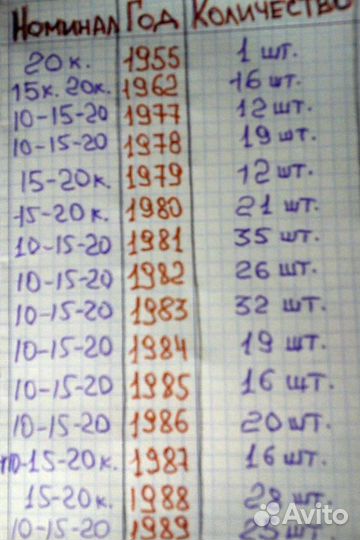 Номинал Год Количество
20 к. 1955 1 шт.
15к. 20к. 1962 16 шт.
10-15-20 1977 12 шт.
10-15-20 1978 19 шт.
15-20к. 1979 12 шт.
15-20к. 1980 21 шт.
10-15-20 1981 35 шт.
10-15-20 1982 26 шт.
10-15-20 1983 32 шт.
10-15-20 1984 19 шт.
10-15-20 1985 16 шт.
10-15-20 1986 20 шт.
10-15-20к. 1987 16 шт.
15-20к. 1988 28 шт.
10-15-20 1989 шт.
Avito